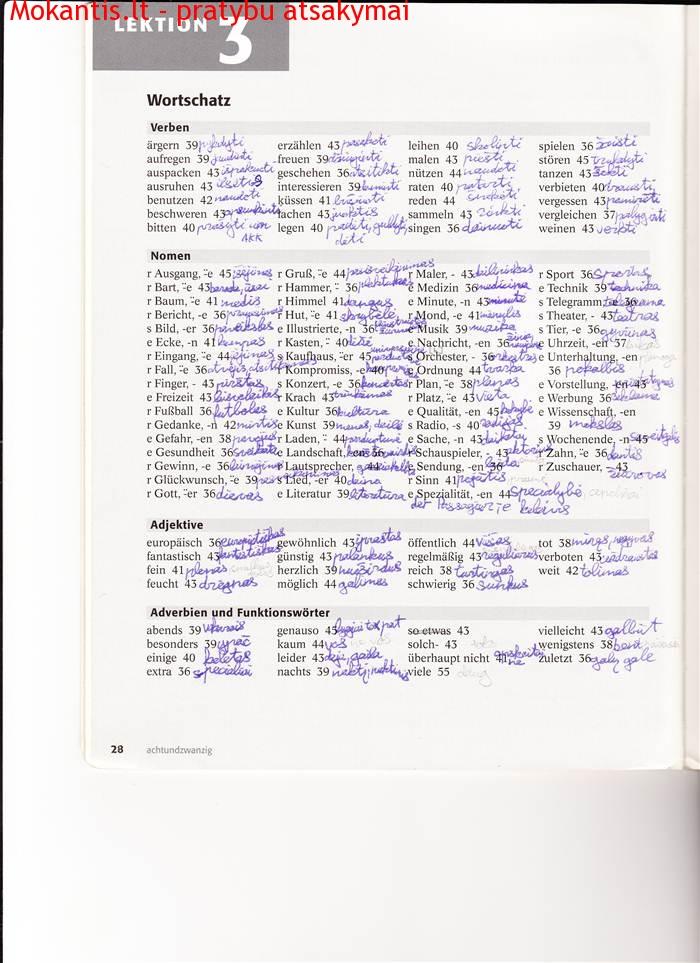 Mokantis.lt - pratybu atsakymai
LEKTION 3
Wortschatz
Verben
ärgern 39 pykdyti erzählen 43 leihen 40 skolinti spielen 36 žaisti
aufregen 39 jaudinti freuen 39 džiuginti malen 43 piešti stören 45 trukdyti
auspacken 43 išpakuoti geschehen 36 atsitikti nützen 44 naudoti tanzen 43 šokti
ausruhen 43 ilsėtis interessieren 39 raten 40 patarti, verbieten 40 drausti,
benutzen 42 naudoti küssen 41 bučiuoti reden 44 vergessen 43 pamiršti
beschweren 43 lachen 43 juoktis sammeln 43 rinkti vergleichen 37 palyginti
bitten 40 prašyti um AKK legen 40 padėti, guldyti, dėti singen 36 dainuoti weinen 43 verkti
Nomen
r Ausgang, ¨-e 45 išėjimas r Gruß, ¨-e 44 r Maler, - 43 dailininkas r Sport 36 Sportas
r Bart, ¨-e 43 barzda, ūsai r Hammer, ¨- 36 plaktukas e Medizin 36 medicina e Technik 39 technika
r Baum, ¨-e 41 medis r Himmel 41 dangus e Minute, -n 43 minutė s Telegramm, -e 36 telegrama
r Bericht, -e 36 pranešimas r Hut, ¨-e 41 skrybėlė r Mond, -e 41 mėnulis s Theater, - 43 teatras
s Bild, -er 36 paveikslas e Illustrierte, -n 36 e Musik 39 muzika s Tier, -e 36 gyvūnas
e Ecke, -n 41 kampas r Kasten, ¨- 40 dėžė e Nachricht, -en 36 žinia e Uhrzeit, -en 37 laikas
r Eingang, ¨-e 44 įėjimas s Kaufhaus, ¨-er 45 s Orchester, - 36 orkestras e Unterhaltung, -en
r Fall, ¨-e 36 atvejis, atsitikimas r Kompromiss, -e 40 e Ordnung 44 tvarka 36 pokalbis
r Finger, - 43 pirštas s Konzert, -e 36 koncertas r Plan, ¨-e 38 planas e Vorstellung, -en 43
e Freizeit 43 laisvalaikis r Krach 43 triukšmas r Platz, ¨-e 43 vieta e Werbung 36 reklama
r Fußball 36 futbolas e Kultur 36 kultūra e Qualität, -en 45 kokybė e Wissenschaft, -en
r Gedanke, -n 42 mintis e Kunst 39 menas, dailė s Radio, -s 40 radijas 39 mokslas
e Gefahr, -en 38 pavojus r Laden, ¨- 44 parduotuvė e Sache, -n 43 daiktas s Wochenende, -n 45 savaitgalis
e Gesundheit 36 sveikata e Landschaft, -en 36 kraštovaizdis r Schauspieler, - 43 aktorius r Zahn, ¨-e 36 dantis
r Gewinn, -e 36 laimėjimas r Lautsprecher, - 44 garsiakalbis e Sendung, -en 36 laida r Zuschauer, - 43 žiūrovas
r Glückwunsch, ¨-e 39 s Lied, -er 40 daina r Sinn 41
r Gott, ¨-er 36 dievas e Literatur 39 literatūra e Spezialität, -en 44 Specialybė
der Passagier, e keleivis
Adjektive
europäisch 36 europietiškas gewöhnlich 43 įprastas öffentlich 44 viešas tot 38 miręs, negyvas
fantastisch 43 fantastiškas günstig 43 palankus regelmäßig 43 reguliarus verboten 43 uždraustas
fein 41 herzlich 39 nuoširdus reich 38 turtingas weit 42 tolimas
feucht 43 drėgnas möglich 44 galimas schwierig 36 sunkus
Adverbien und Funktionswörter
abends 39 vakarais genauso 45 lygiai toks pat so etwas 43 vielleicht 43 galbūt
besonders 39 ypač kaum 44 vos solch- 43 wenigstens 38 bent
einige 40 keletas leider 43 deja, gaila überhaupt nicht 41 apskritai ne zuletzt 36 galų gale
extra 36 specialiai nachts 39 naktį, naktimis viele 55 daug
28 achtundzwanzig